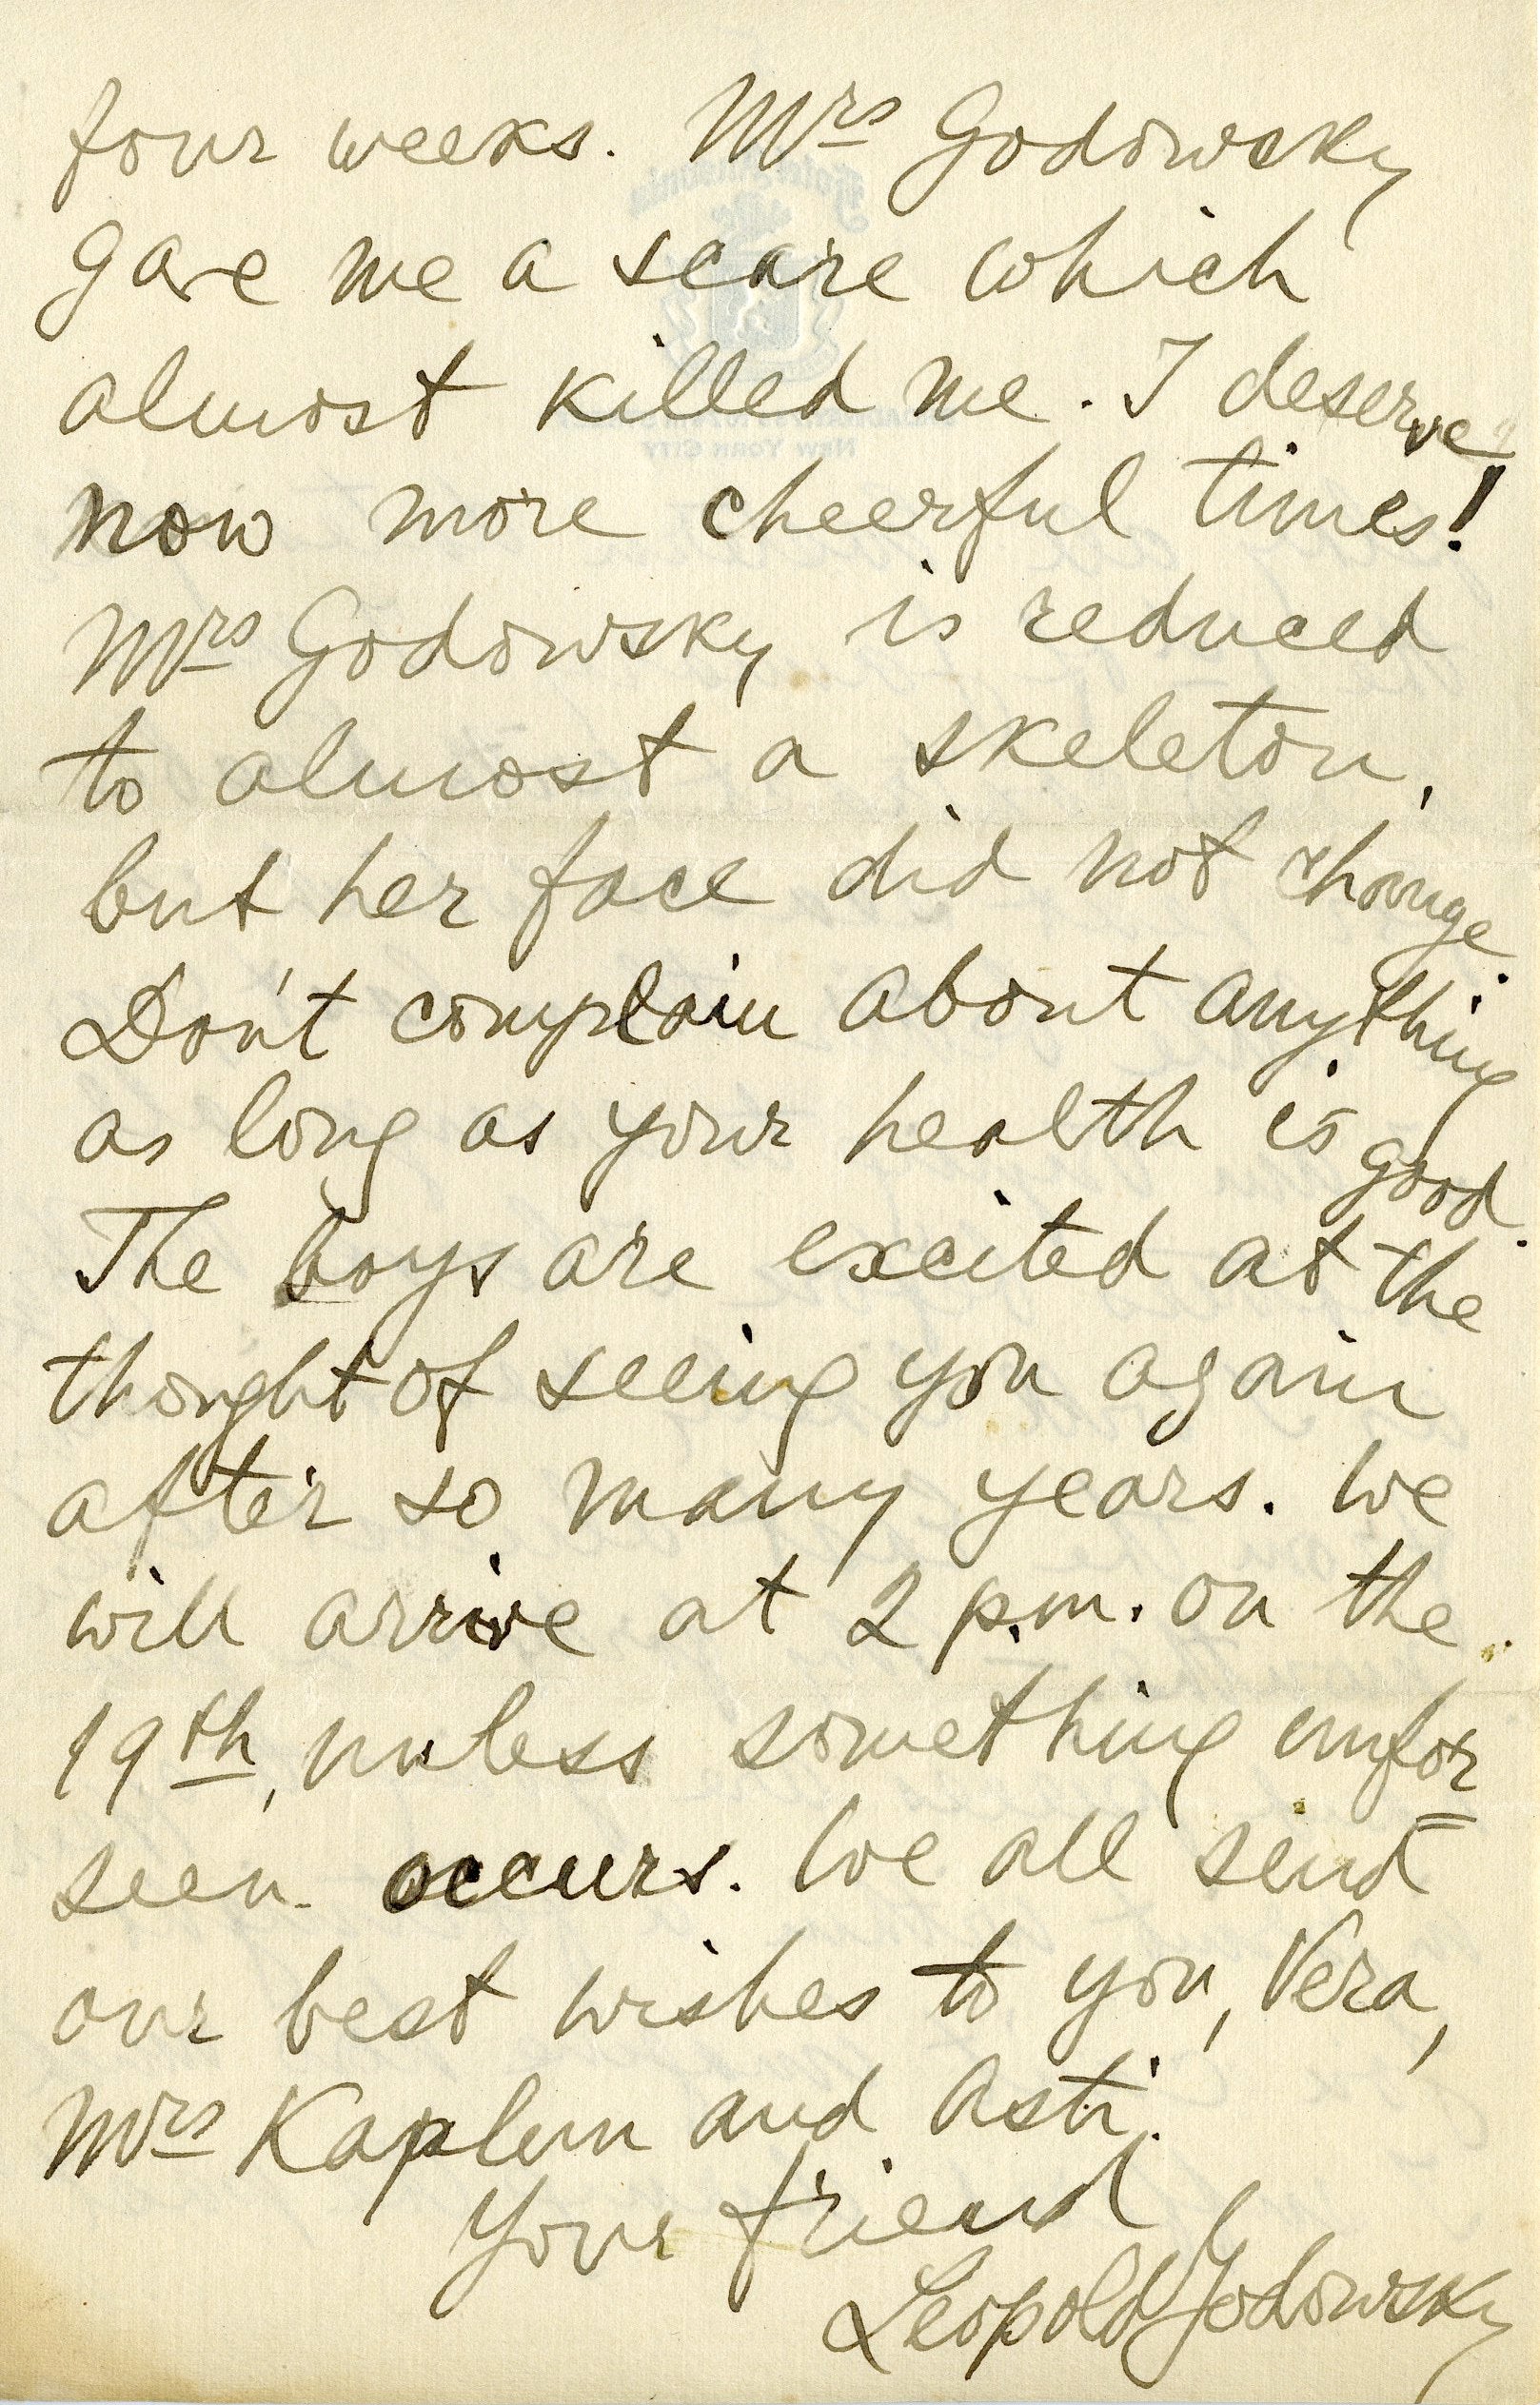 four weeks. Mrs Godowsky
gave me a scare which
almost killed me. I deserve
now more cheerful times!
Mrs Godowsky is reduced
to almost a skeleton,
but her face did not change.
Don't complain about anything
as long as your health is good.
The boys are excited at the
thought of seeing you again
after so many years. We
will arrive at 2 p.m. on the
19th, unless something unfor
seen occurs. We all send
our best wishes to you, Vera,
Mrs Kaplun and Asti.
Your friend
Leopold Godowsky
NEW YORK CITY